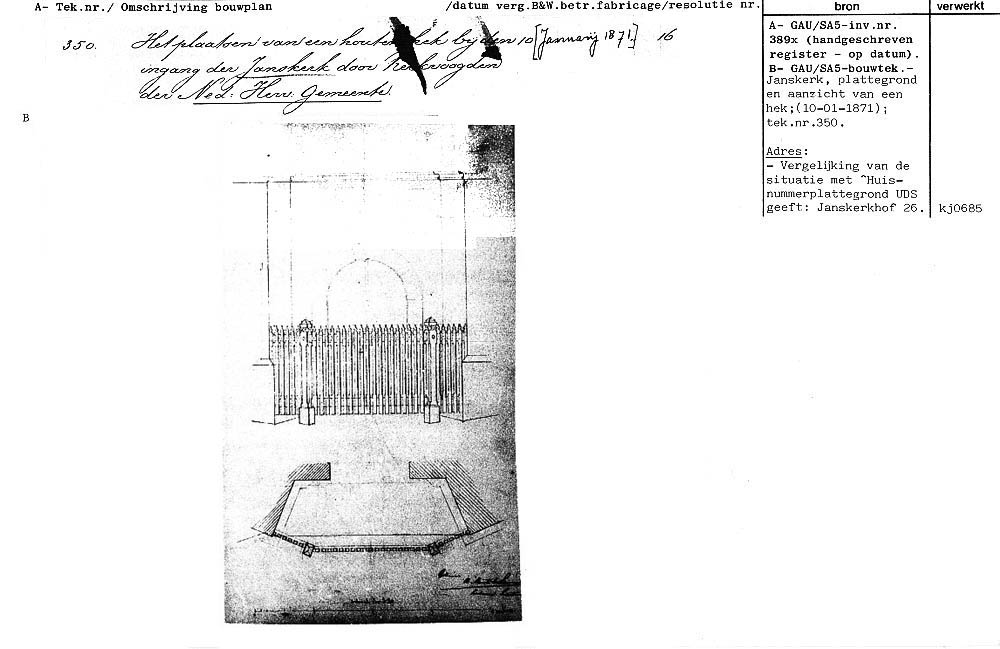 A- Tek.nr./ Omschrijving bouwplan /datum verg.B&W.betr.fabricage/resolutie nr.
bron
verwerkt
350. Het plaatsen van een houten hek bij den 10 [January 1871.] 16
ingang der Janskerk door Kerkvoogden
der Ned: Herv. Gemeente
B
A- GAU/SA5-inv.nr.
389x (handgeschreven
register - op datum).
B- GAU/SA5-bouwtek.-
Janskerk, plattegrond
en aanzicht van een
hek;(10-01-1871);
tek.nr.350.
Adres:
- Vergelijking van de
situatie met ^Huis-
nummerplattegrond UDS
geeft: Janskerkhof 26. kj0685